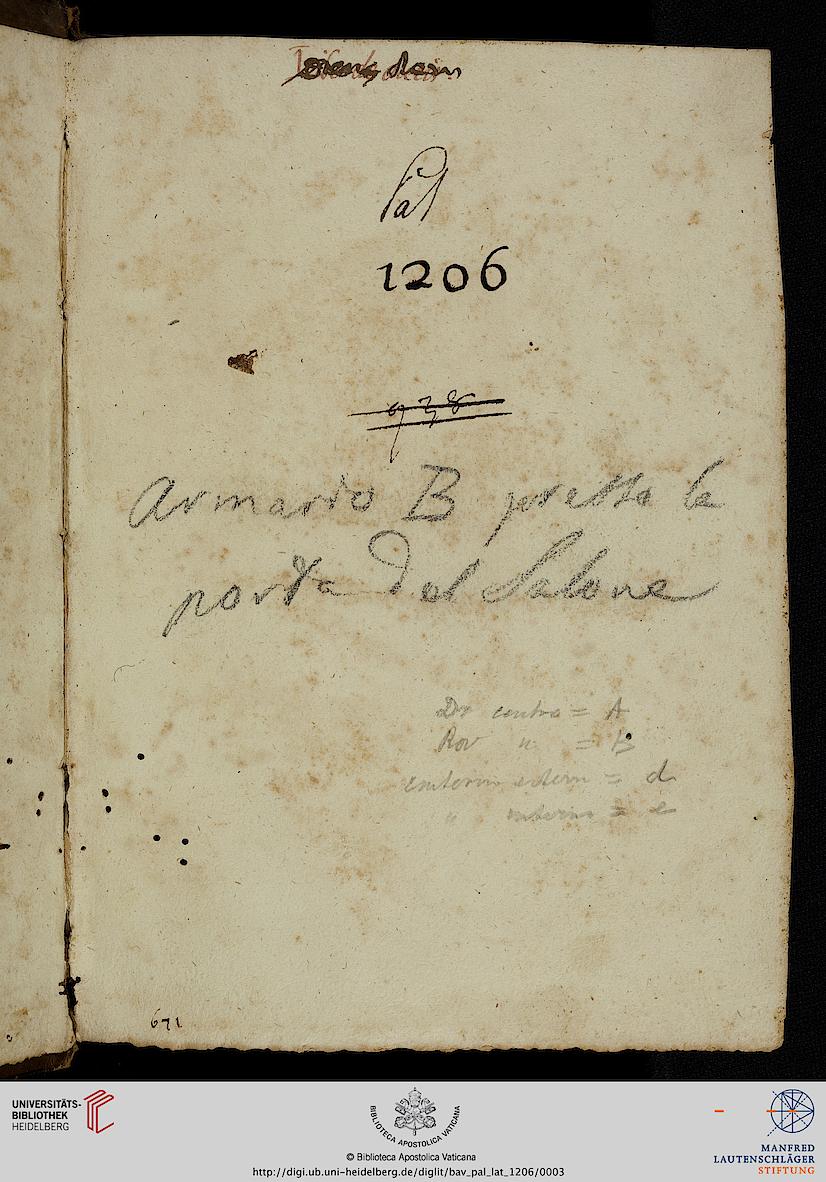 Pal
1206
938
Armario B presso la
porta del Salone
Dr contro = A
Rov " = B
esterni = d
" interno = e
671
UNIVERSITÄTS-
BIBLIOTHEK
HEIDELBERG
BIBLIOTECA APOSTOLICA VATICANA
© Biblioteca Apostolica Vaticana
http://digi.ub.uni-heidelberg.de/diglit/bav_pal_lat_1206/0003
MANFRED
LAUTENSCHLÄGER
STIFTUNG